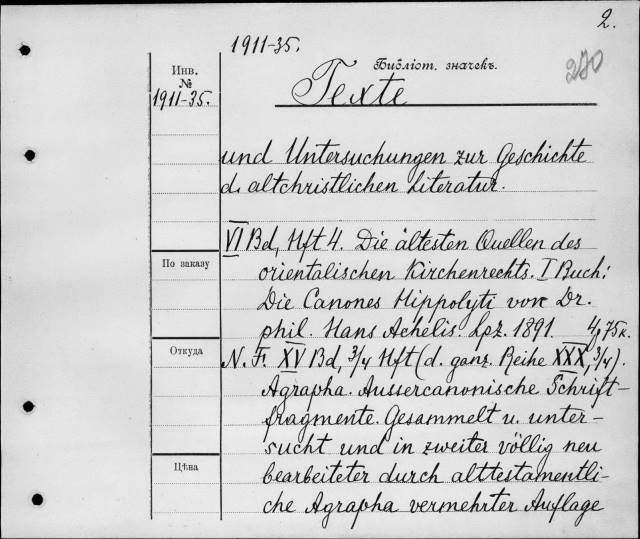 2.
1911-35.
Библіот. значекъ.
Инв.
№
1911-35.
270
Texte
und Untersuchungen zur Geschichte
d. altchristlichen Literatur.
VI Bd, Hft 4. Die ältesten Quellen des
По заказу
orientalischen Kirchenrechts. I Buch:
Die Canones Hippolyti von Dr.
phil. Hans Achelis. Lpz. 1891. 4 р 75 к.
Откуда
N. F. XV Bd, 3/4 Hft (d. ganz. Reihe XXX, 3/4).
Agrapha. Aussercanonische Schrift-
fragmente. Gesammelt u. unter-
sucht und in zweiter völlig neu
Цѣна
bearbeiteter durch alttestamentli-
che Agrapha vermehrter Auflage